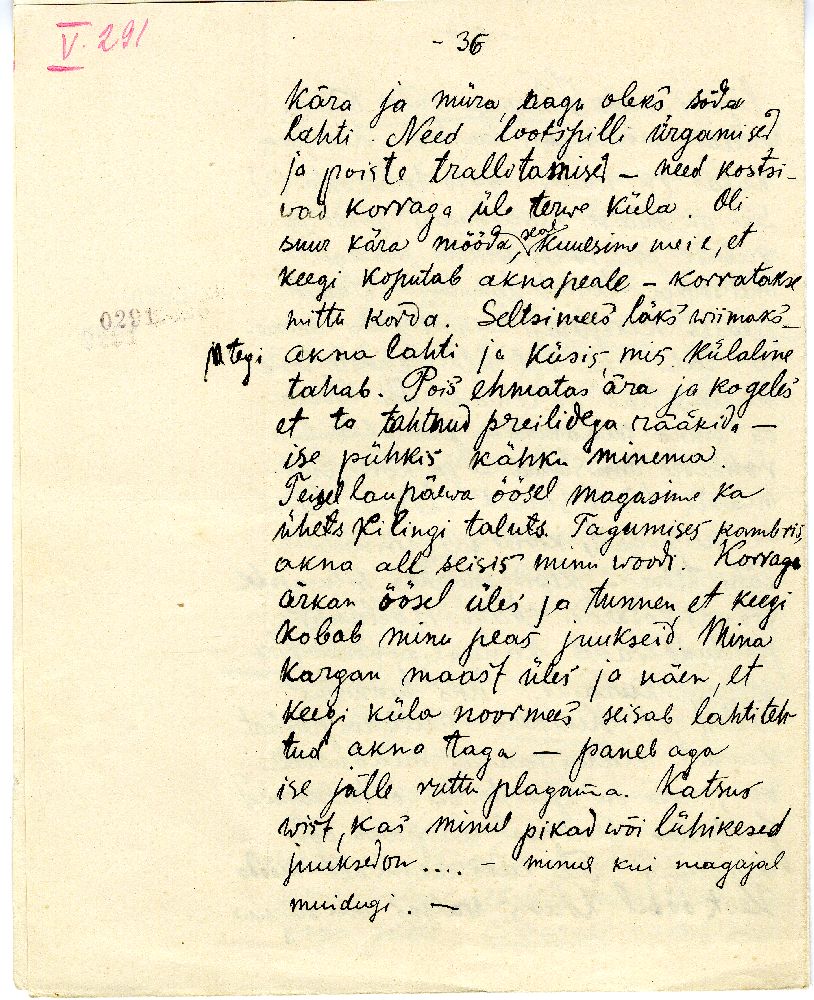 V. 291
- 36
Kära ja müra, nagu oleks sõda
lahti. Need lootspilli ürgamised
ja poiste trallitamised – need kostsi-
wad korraga üle terwe küla. Oli
suur kära mööda, seal kuulsime meie, et
keegi koputab aknapeale – korratakse
mittu korda. Seltsimees läks wiimaks
0291
ja tegi akna lahti ja küsis, mis külaline
tahab. Pois ehmatas ära ja kogeles
et ta tahtnud preilidega rääkida –
ise pühkis kähku minema.
Teisel laupäewa öösel magasime ka
ühets Kilingi taluts. Tagumises kambris,
akna all seisis minu woodi. Korraga
ärkan öösel üles ja tunnen, et keegi
kobab minu peas juukseid. Mina
kargan maast üles ja näen, et
keegi küla noormees seisab lahtiteh-
tud akna taga – paneb aga
ise jälle ruttu plagama. Katsus
wist, kas minul pikad wõi lühikesed
juuksed on .... – minul kui magajal
muidugi. —